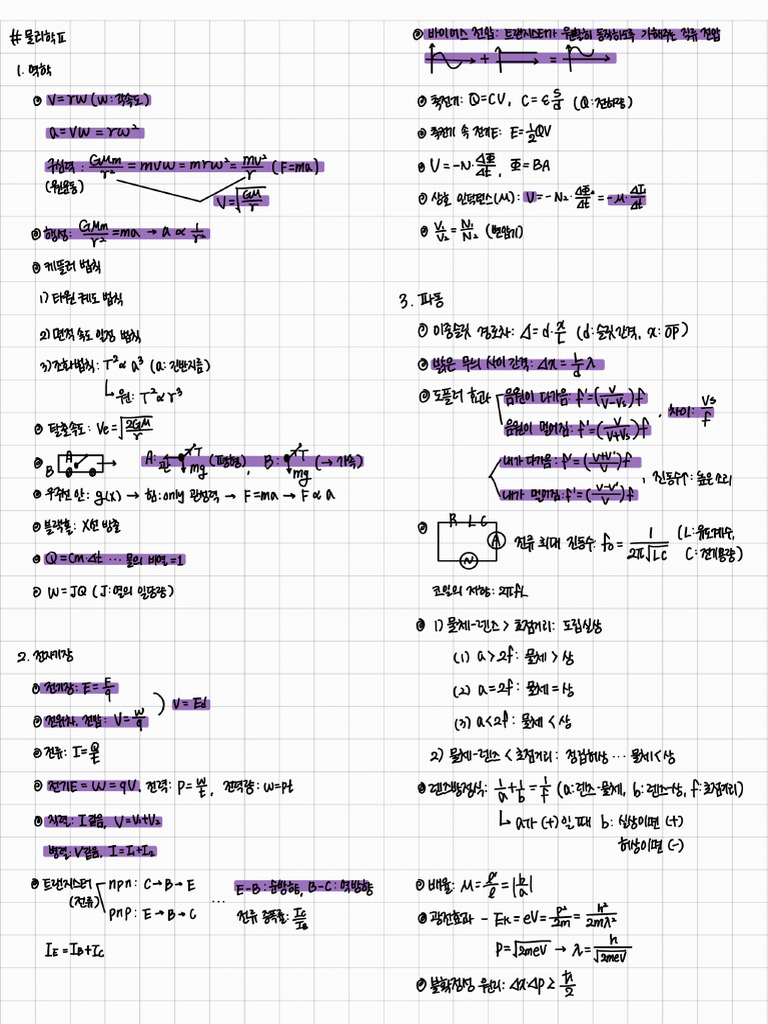 # 물리학Ⅱ
1. 역학
⊙ V=rω (ω: 각속도)
a=Vω=rω²
구심력: GMm/r² = mvω = mrω² = mv²/r (F=ma)
(원운동)
V=√(GM/r)
⊙ 행성: GMm/r² = ma → a ∝ 1/r²
⊙ 케플러 법칙
1) 타원 궤도 법칙
2) 면적 속도 일정 법칙
3) 조화법칙: T²∝a³ (a: 긴반지름)
↳ 원: T²∝r³
⊙ 탈출속도: Ve=√(2GM/r)
⊙ A B → A: 관 T mg (평형), B: T mg (→가속)
⊙ 우주선 안: g(x) → 힘: only 관성력 → F=ma → F∝a
⊙ 블랙홀: X선 방출
⊙ Q=Cm·Δt … 물의 비열=1
⊙ W=JQ (J: 열의 일당량)
2. 전자기장
⊙ 전기장: E=F/q
V=Ed
⊙ 전위차, 전압: V=W/q
⊙ 전류: I=Q/t
⊙ 전기E=W=qV, 전력: P=W/t, 전력량: W=Pt
⊙ 직렬: I같음, V=V₁+V₂
병렬: V같음, I=I₁+I₂
⊙ 트랜지스터 npn: C→B→E … E-B: 순방향, B-C: 역방향
(전류) pnp: E→B→C 전류 증폭률: Ic/IB
IE=IB+Ic
⊙ 바이어스 전압: 트랜지스터가 원활히 동작하도록 가해주는 직류 전압
+ =
⊙ 축전기: Q=CV, C=ε S/d (Q: 전하량)
⊙ 축전기 속 전기E: E=½QV
⊙ V=-N·ΔΦ/Δt, Φ=BA
⊙ 상호 인덕턴스(M): V=-N₂·ΔΦ/Δt=-M·ΔI₁/Δt
⊙ V₁/V₂=N₁/N₂ (변압기)
3. 파동
⊙ 이중슬릿 경로차: Δ=d·x/L (d: 슬릿간격, x: OP)
⊙ 밝은 무늬 사이 간격: Δx=L/d λ
⊙ 도플러 효과 음원이 다가옴: f'=(V/(V-Vs))f
, 차이: Vs/f
음원이 멀어짐: f'=(V/(V+Vs))f
내가 다가옴: f'=((V+V')/V)f
, 진동수↑: 높은 소리
내가 멀어짐: f'=((V-V')/V)f
⊙ R L C A 전류 최대 진동수: f₀=1/(2π√LC) (L: 유도계수, C: 전기용량)
코일의 저항: 2πfL
⊙ 1) 물체-렌즈 > 초점거리: 도립실상
(1) a>2f: 물체 > 상
(2) a=2f: 물체 = 상
(3) a<2f: 물체 < 상
2) 물체-렌즈 < 초점거리: 정립허상 … 물체<상
⊙ 렌즈방정식: 1/a+1/b=1/f (a: 렌즈-물체, b: 렌즈-상, f: 초점거리)
↳ a가 (+)일 때 b: 실상이면 (+)
허상이면 (-)
⊙ 배율: M=l'/l=|b/a|
⊙ 광전효과 - Ek=eV=P²/2m=h²/2mλ²
P=√2meV → λ=h/√2meV
⊙ 불확정성 원리: Δx·Δp≥ħ/2